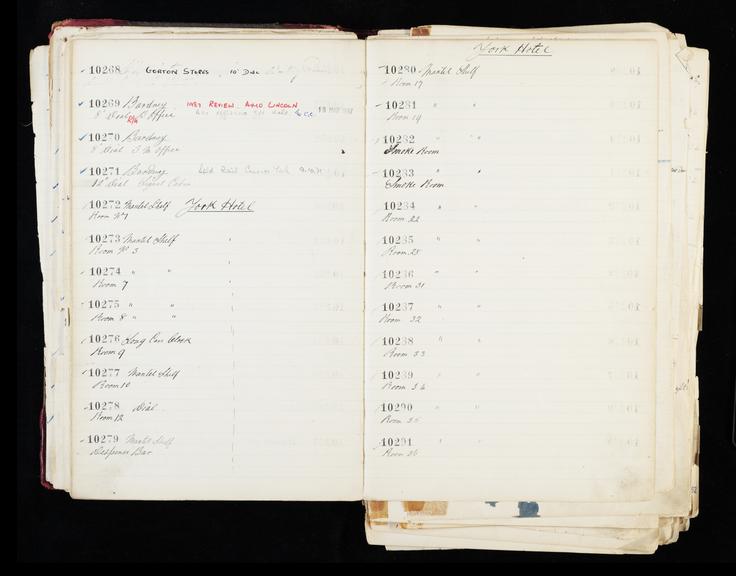 10268 GORTON STORES 10" DIAL
10269 Bardney 1987 REVIEW. AMO LINCOLN
8" Dial S Office 18 MAY 1987
R/A
10270 Bardney
8" Dial S M Office
10271 Bardney Sold Rail Curator York
12" Dial Signal Cabin
10272 Mantel Shelf York Hotel
Room No 1
10273 Mantel Shelf "
Room No 3
10274 " "
Room 7
10275 " "
Room 8 " "
10276 Long Case Clock
Room 9
10277 Mantel Shelf
Room 10
10278 Dial
Room 12
10279 Mantel Shelf
Dispense Bar
York Hotel
10280 Mantel Shelf
Room 17
10281 " "
Room 19
10282 " "
Smoke Room
10283 " "
Smoke Room
10284 " "
Room 22
10285 " "
Room 25
10286 " "
Room 31
10287 " "
Room 32
10288 " "
Room 33
10289 " "
Room 34
10290 " "
Room 35
10291 " "
Room 36